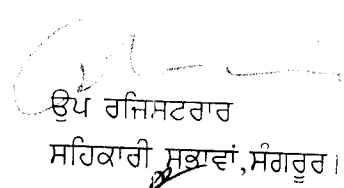 ਉਪ ਰਜਿਸਟਰਾਰ
ਸਹਿਕਾਰੀ ਸਭਾਵਾਂ,ਸੰਗਰੂਰ।